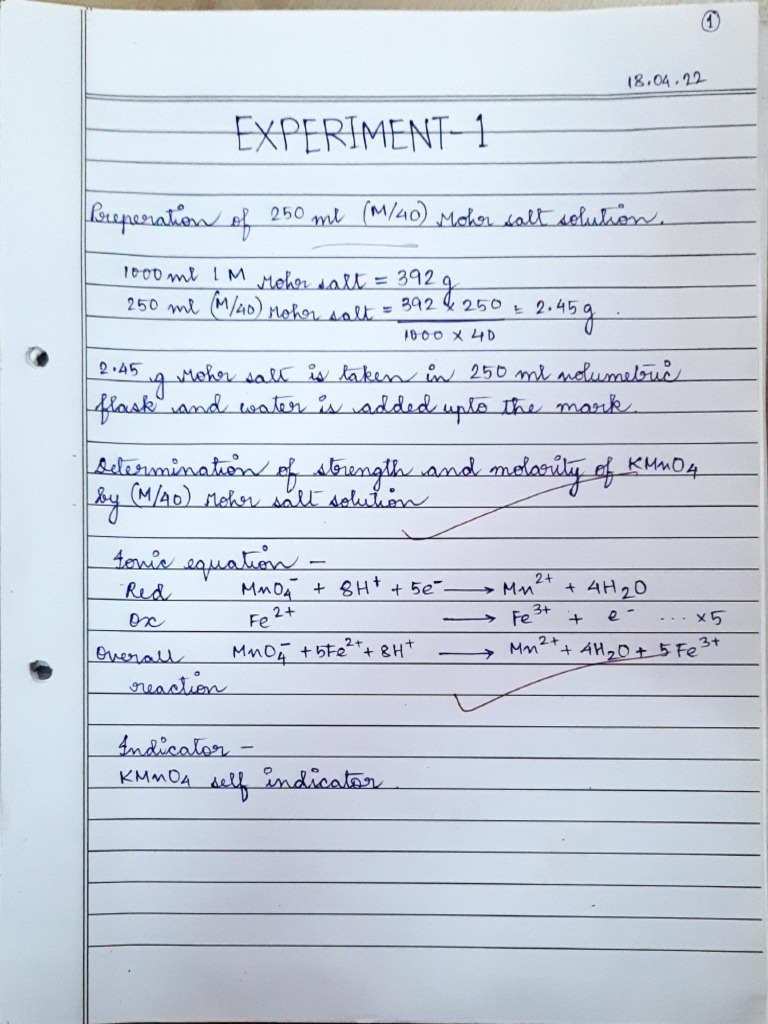 ①
18.04.22
EXPERIMENT-1
Preperation of 250 ml (M/40) Mohr salt solution.
1000 ml 1 M Mohr salt = 392 g
250 ml (M/40) Mohr salt = 392 × 250 / 1000 × 40 = 2.45 g.
2.45 g Mohr salt is taken in 250 ml volumetric
flask and water is added upto the mark.
Determination of strength and molarity of KMnO₄
by (M/40) Mohr salt solution
Ionic equation –
Red MnO₄⁻ + 8H⁺ + 5e⁻ ⟶ Mn²⁺ + 4H₂O
Ox Fe²⁺ ⟶ Fe³⁺ + e⁻ ... ×5
Overall MnO₄⁻ + 5Fe²⁺ + 8H⁺ ⟶ Mn²⁺ + 4H₂O + 5Fe³⁺
reaction
Indicator –
KMnO₄ self indicator.